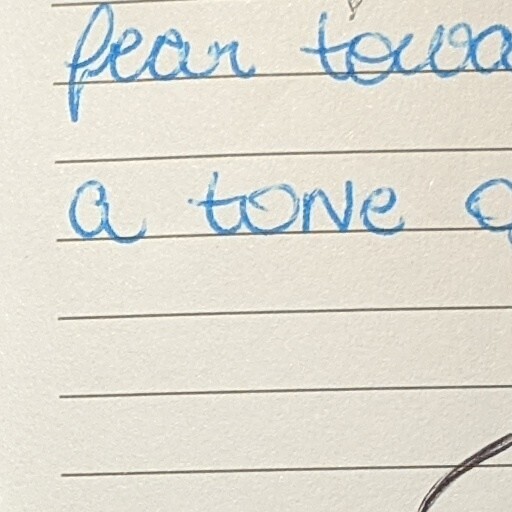 fear towa
a tone